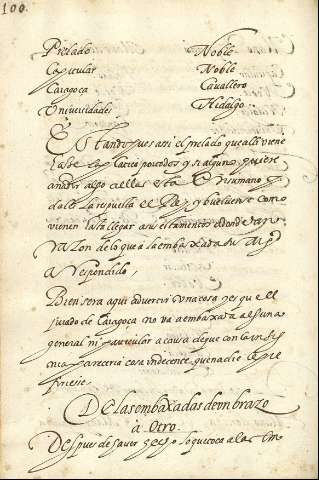 100.
Prelado Noble
Capitular Noble
Çaragoça Cavallero
Universidades Hidalgo
Estando pues assi el prelado que alli viene
la de platica por todos y si alguno quiere
añadir algo a ella esta en su mano y
dada la respuesta el Rey se buelven como
vienen hasta llegar a su estamento adonde
razon de lo que a la embaxada su Magd
a respondido,
Bien sera aqui advertir una cosa y es que el
jurado de Çaragoça no va a embaxada alguna
general ni particular a causa de que con la insig
nia pareceria cosa indecente que nadie le pre
firiese.
De las embaxadas de un brazo
a otro.
Despues de haver dicho lo que toca a las em